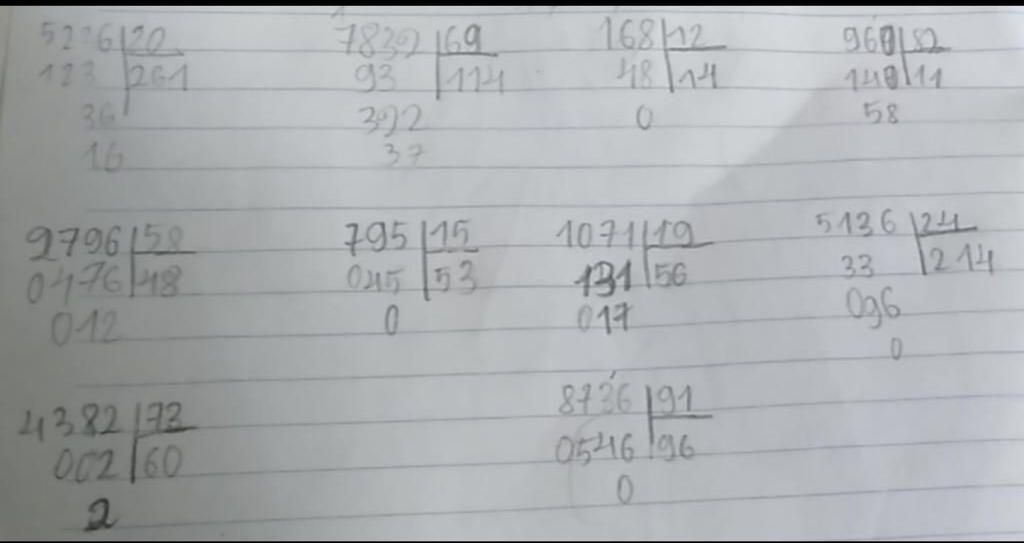 5236 20 69 168 12 960 82
123 261 93 114 48 14 140 11
36 392 0 58
16 37
2796 58 795 15 1071 19 5136 24
0476 48 045 53 131 56 33 214
012 0 017 096
0
4382 73 8736 91
002 60 0546 96
2 0